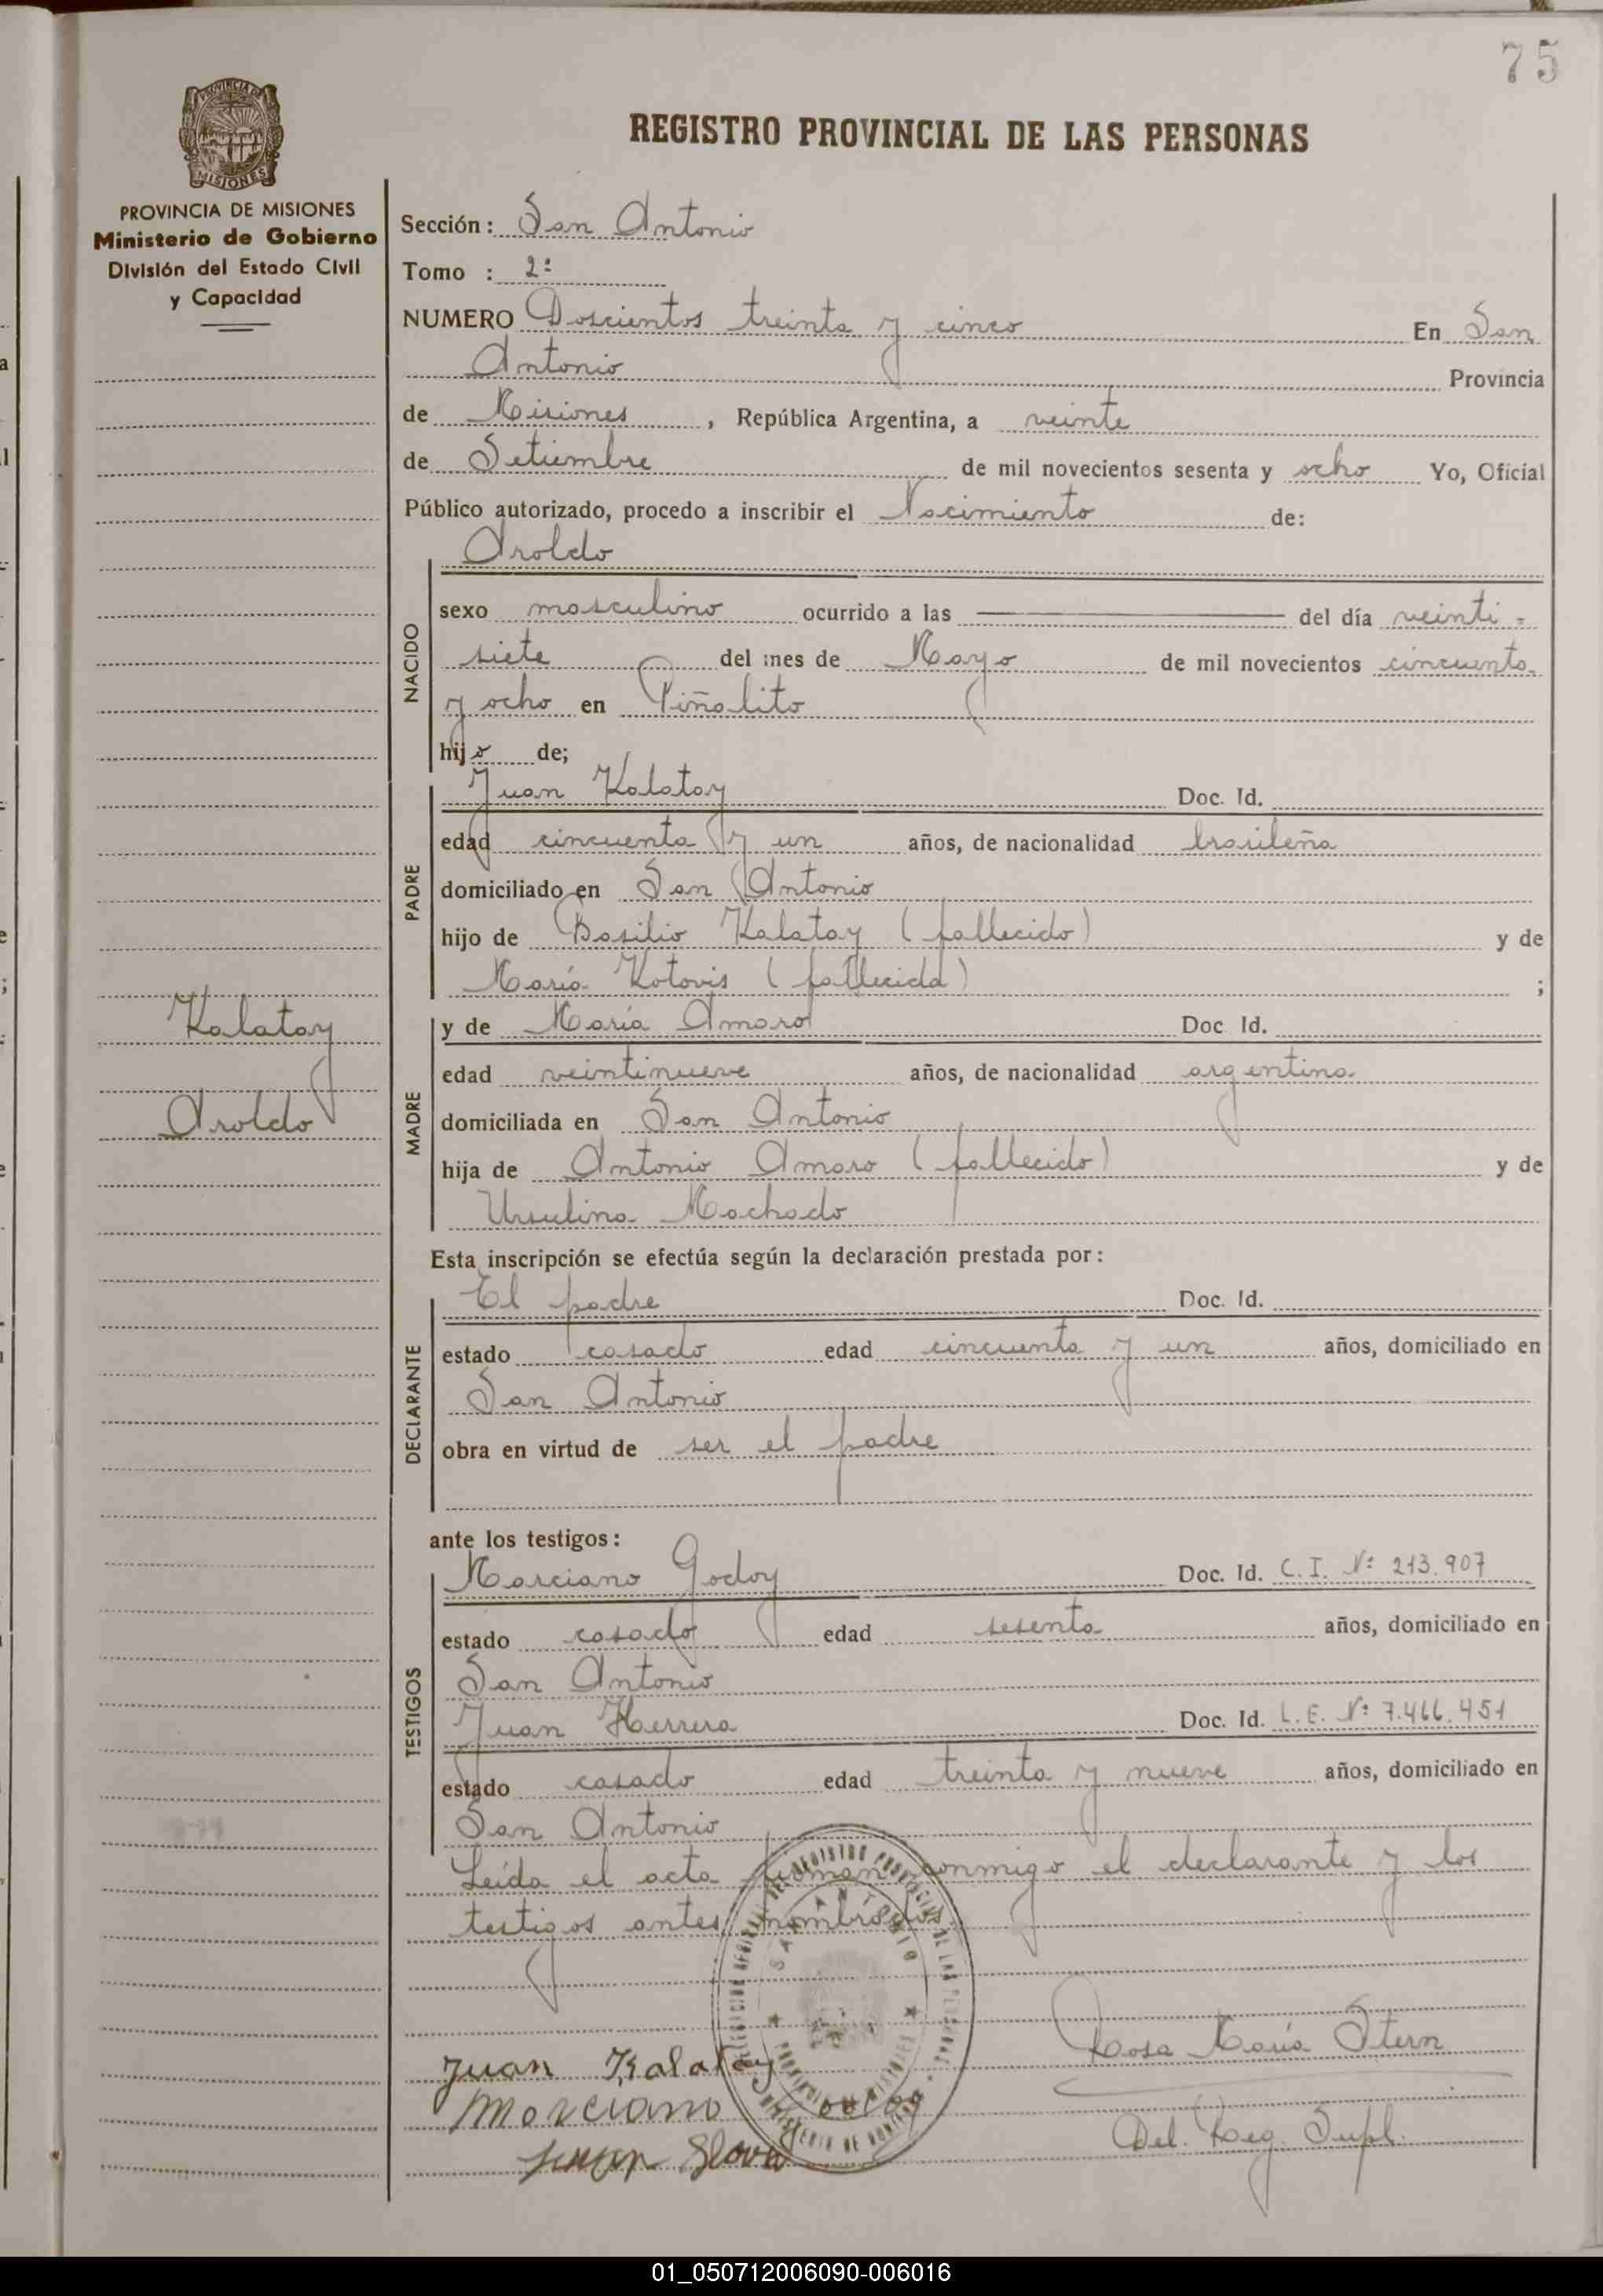 75
REGISTRO PROVINCIAL DE LAS PERSONAS
PROVINCIA DE MISIONES
MISIONES
PROVINCIA DE MISIONES
Ministerio de Gobierno
División del Estado Civil
y Capacidad
Kalatay
Aroldo
Sección: San Antonio
Tomo : 2º
NUMERO Doscientos treinta y cinco En San
Antonio Provincia
de Misiones, República Argentina, a veinte
de Setiembre de mil novecientos sesenta y ocho Yo, Oficial
Público autorizado, procedo a inscribir el Nacimiento de:
NACIDO
Aroldo
sexo masculino ocurrido a las ——— del día veinti-
siete del mes de Mayo de mil novecientos cincuenta
y ocho en Piñalito
hijo de;
PADRE
Juan Kalatay Doc. Id.
edad cincuenta y un años, de nacionalidad brasileña
domiciliado en San Antonio
hijo de Basilio Kalatay (fallecido) y de
María Kotovis (fallecida) ;
MADRE
y de María Amaro Doc Id.
edad veintinueve años, de nacionalidad argentina
domiciliada en San Antonio
hija de Antonio Amaro (fallecido) y de
Ursulina Machado
Esta inscripción se efectúa según la declaración prestada por:
DECLARANTE
El padre Doc. Id.
estado casado edad cincuenta y un años, domiciliado en
San Antonio
obra en virtud de ser el padre
ante los testigos:
TESTIGOS
Marciano Godoy Doc. Id. C. I. Nº 213.907
estado casado edad sesenta años, domiciliado en
San Antonio
Juan Herrera Doc. Id. L. E. Nº 7.466.451
estado casado edad treinta y nueve años, domiciliado en
San Antonio
Leída el acta firman conmigo el declarante y los
testigos antes nombrados.
SAN ANTONIO
Juan Kalatay
Marciano
Juan
Rosa María Stern
Del. Reg. Supl.
01_050712006090-006016